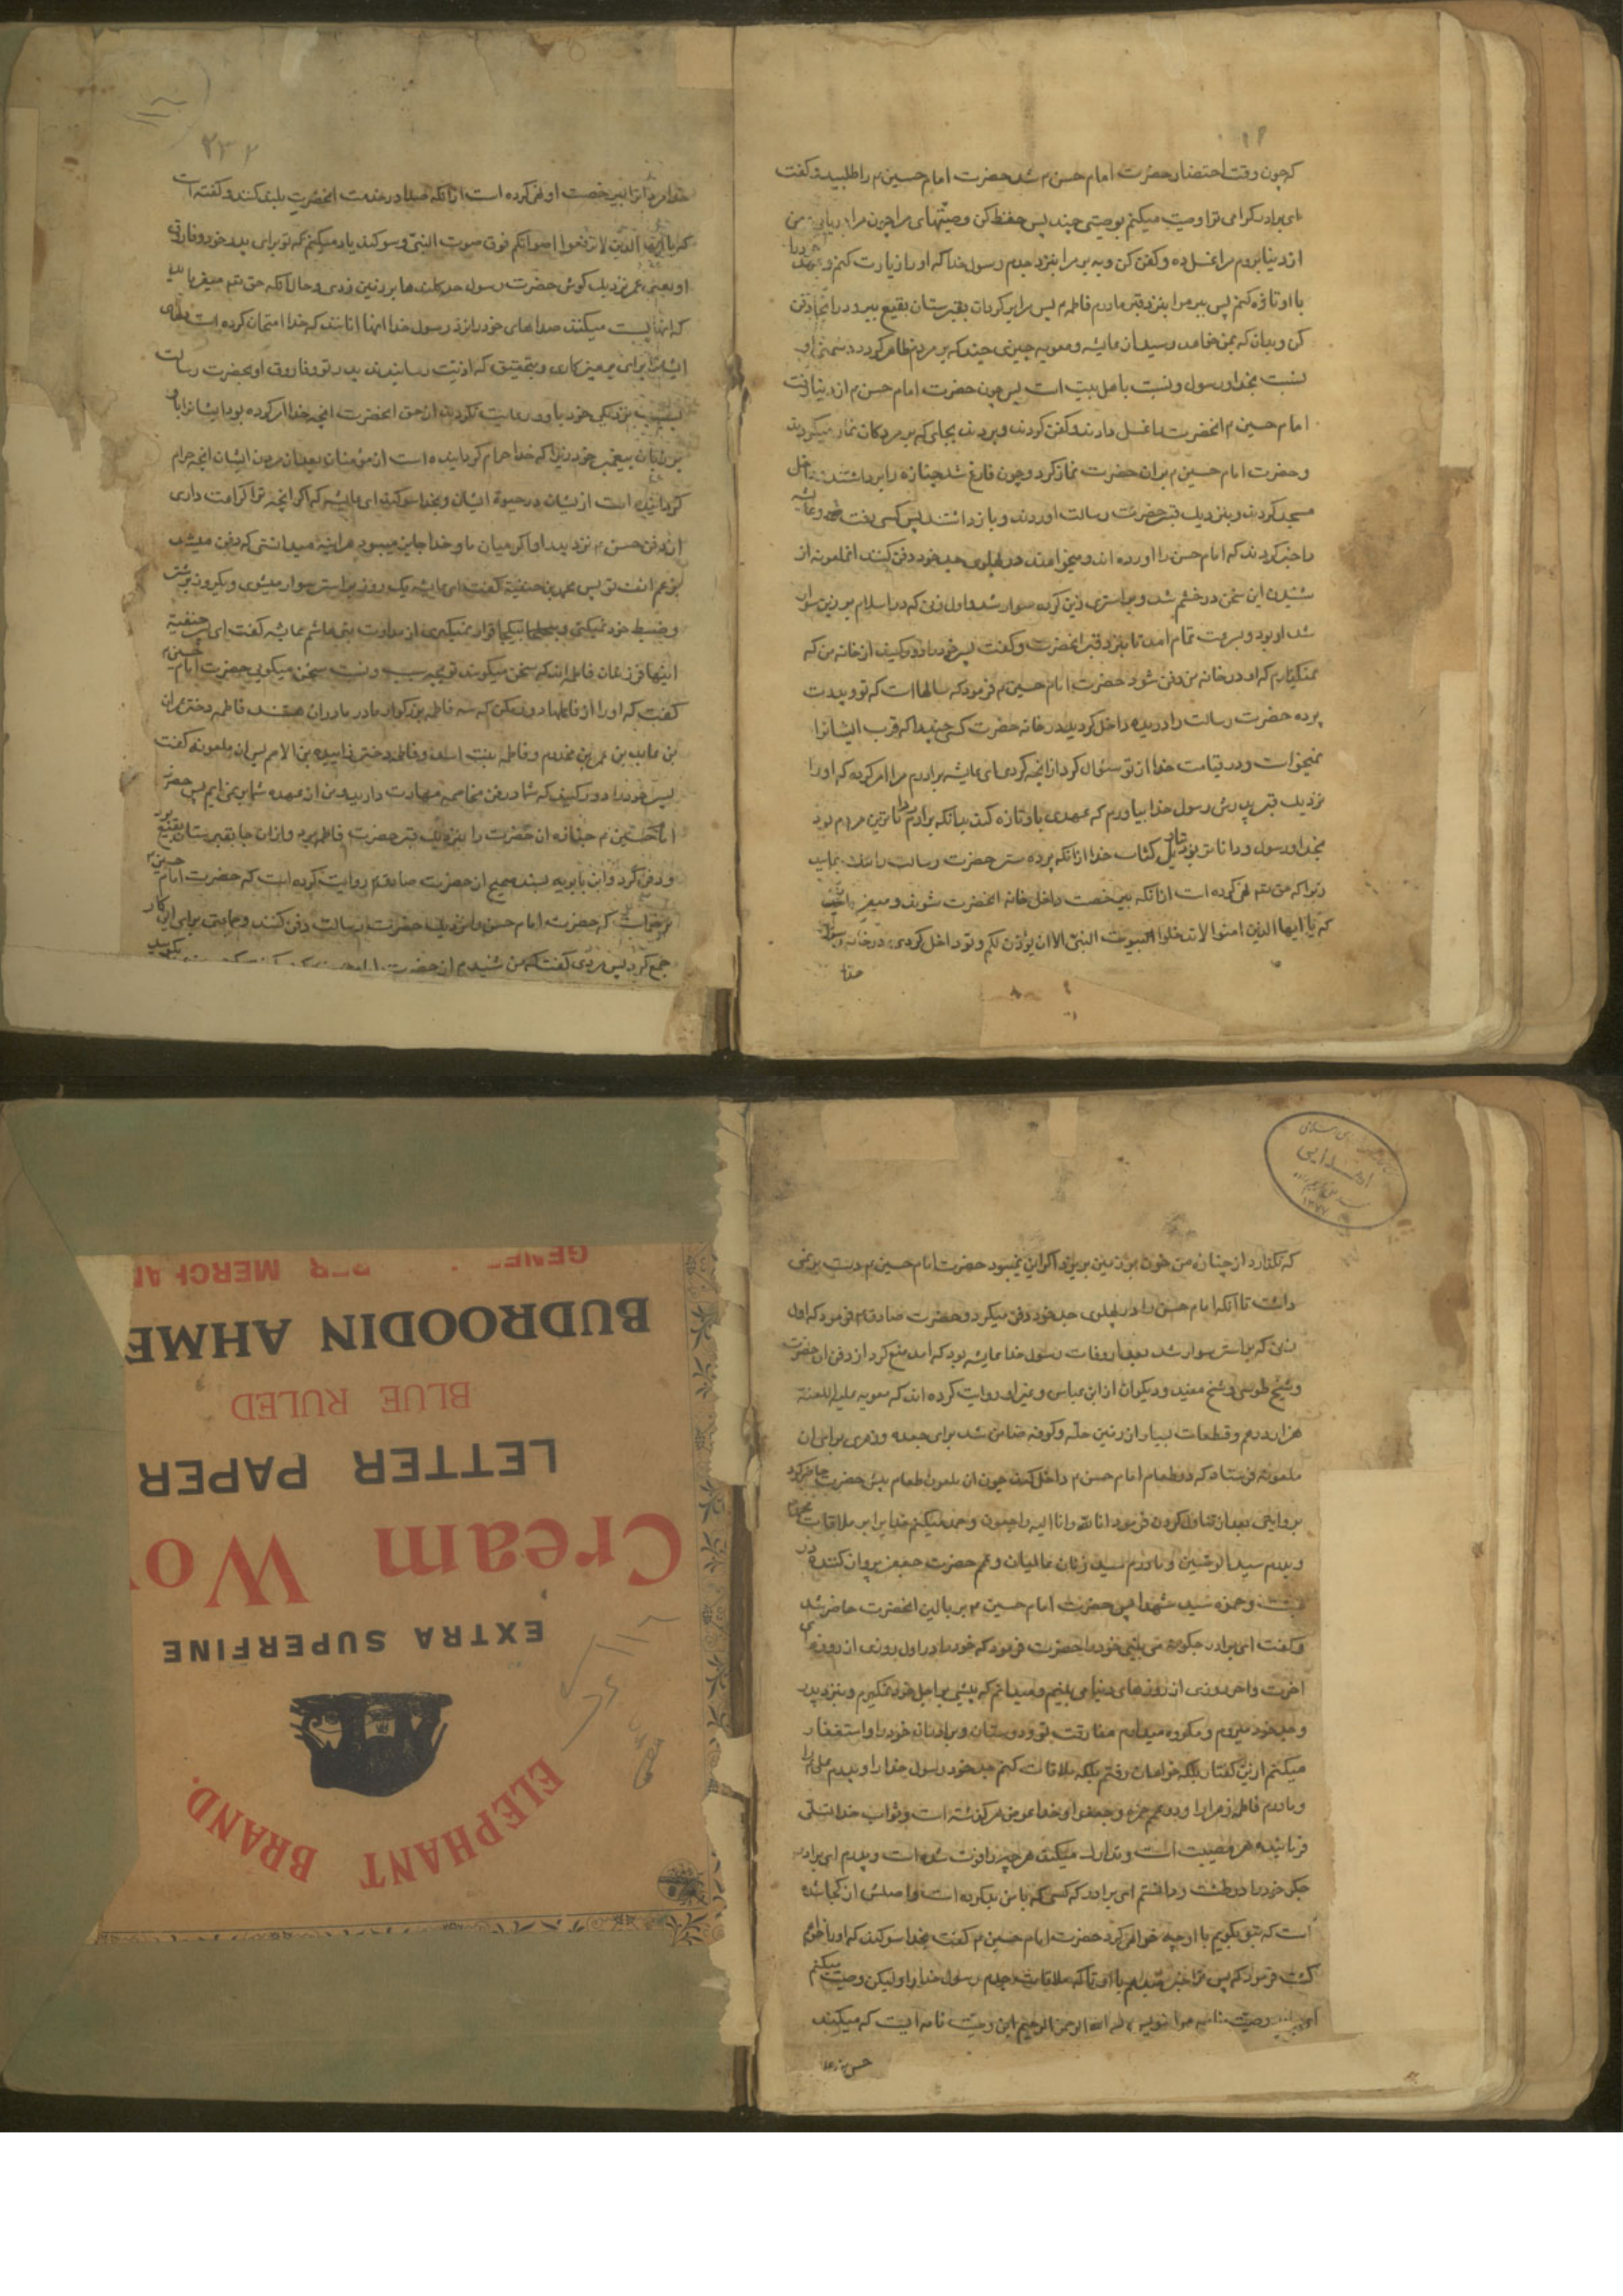 که چون وقت احتضار حضرت امام حسن م شد حضرت امام حسین م را طلبید و گفت
ای برادر گرامی ترا وصیت میکنم بوصیتی چند پس حفظ کن وصیتهای مرا چون من
از دنیا بروم مرا غسل ده و کفن کن و ببر مرا بنزد جدم رسول خدا که او را زیارت کنم و عهد خود را
با او تازه کنم پس ببر مرا بنزد قبر مادرم فاطمه م پس مرا برگردان بقبرستان بقیع ببر و در آنجا دفن
کن و بدان که بمن خواهد رسید از عایشه و معویه چیزی چند که بر مردم ظاهر گردد دشمنی او
نسبت بخدا و رسول و نسبت باهل بیت است پس چون حضرت امام حسن م از دنیا رفت
امام حسین م انحضرت را غسل دادند و کفن کردند و بردند بجائی که بر مردگان نماز میکردند
و حضرت امام حسین م بران حضرت نماز کرد و چون فارغ شد جنازه را برداشتند داخل
مسجد کردند و بنزدیک قبر حضرت رسالت اوردند و باز داشتند پس کسی رفت و عایشه
را خبر کردند که امام حسن را اورده اند و میخواهند در پهلوی جد خود دفن کنند انملعونه از
شنیدن این سخن در خشم شد و بر استری زین کرده سوار شد و اول زنی که در اسلام بر زین سوار
شد او بود و بسرعت تمام امد تا بنزد قبر انحضرت و گفت پسر خود را دور کنید از خانه من که
نمیگذارم که او در خانه من دفن شود حضرت امام حسین م فرمود که سالها است که تو و پدرت
پرده حضرت رسالت را دریده داخل کردید در خانه حضرت کسی چند را که قرب ایشانرا
نمیخواست و در قیامت خدا از تو سؤال کرد از انچه کردی ای عایشه برادرم مرا امر کرده که او را
نزدیک قبر پدرش رسول خدا بیاورم که عهدی با او تازه کند بدانکه برادرم داناترین مردم بود
بخدا و رسول و داناتر بود بتاویل کتاب خدا از انکه پرده ستر حضرت رسالت را هتک نماید
زیرا که حق تعم نهی کرده است از انکه بی رخصت داخل خانه انحضرت شوند و میفرماید
که یا ایها الذین امنوا لا تدخلوا البیوت النبی الا ان یؤذن لکم و تو داخل کردی در خانه رسول
خدا
۲۳۲
خدا مردانرا بی رخصت او نهی کرده است از انکه صدا در خدمت انحضرت بلند کنند و گفته است
که یا ایها الذین لا ترفعوا اصواتکم فوق صوت النبی و سوگند یاد میکنم که تو برای پدر خود و فاروق
او یعنی عمر نزدیک گوش حضرت رسول خدا کلندها بر زمین زدی و حال آنکه حق تعم میفرماید
که انها پست میکنند صداهای خود را نزد رسول خدا انها انانند که خدا امتحان کرده است دلهای
ایشانرا برای پرهیزکاری و بتحقیق که اذیت رسانیدند پدر تو و فاروق او بحضرت رسالت
بسبب نزدیکی خود باو و رعایت نکردند از حق انحضرت انچه خدا امر کرده بود ایشانرا باو
بر زبان پیغمبر خود زیرا که خدا حرام گردانیده است از مؤمنان بعد از مردن ایشان انچه حرام
گردانیده است از ایشان در حیوة ایشان و بخدا سوگند ای عایشه که اگر انچه تو اکراهت داری
از دفن حسن م نزد پدر او اگر میان ما و خدا جایز میبود هر اینه میدانستی که دفن میشد
برغم انف تو پس محمد بن حنفیه گفت ای عایشه یک روز بر استر سوار میشوی و یکروز بر شتر
و ضبط خود نمیکنی و بیکجا قرار نمیگیری از عداوت بنی هاشم عایشه گفت ای پسر حنفیه
اینها فرزندان فاطمه اند که سخن میگویند تو بچه سبب و نسبت سخن میگویی حضرت امام حسین م
گفت که او را از فاطمها دور مکن که سه فاطمه بزرگوار مادر مادران هستند فاطمه دختر عمران
بن عاید بن عمر بن مخزوم و فاطمه بنت اسد و فاطمه دختر زاییده بن الاصم پس ان ملعونه گفت
پسر خود را دور کنید که شما در فن مخاصمه مهارت دارید و من از عهده شما بر نمی ایم پس حضرت
امام حسین م جنازه ان حضرت را بنزدیک قبر حضرت فاطمه برد و از ان جا بقبرستان بقیع برد
و دفن کرد و ابن بابویه بسند صحیح از حضرت صادق م روایت کرده است که حضرت امام حسین م
میخواست که حضرت امام حسن را نزدیک حضرت رسالت دفن کنند و جماعتی برای این کار
جمع کرد پس مردی گفت که من شنیدم از حضرت امام حسن
که نگذارد از جنازه من خون بر زمین بریزد اگر این نمیبود حضرت امام حسین م دست بر نمی
داشت تا آنکه امام حسن را در پهلوی جد خود دفن میکرد و حضرت صادق م فرمود که اول
زنی که بر استر سوار شد بعد از وفات رسول خدا عایشه بود که امد منع کرد از دفن ان حضرت
و شیخ طوسی و شیخ مفید و دیگران از ابن عباس و غیر او روایت کرده اند که معویه علیه اللعنه
هزار درهم و قطعات بسیار از زمین حله و کوفه ضامن شد برای جعده و زهری برای ان
ملعونه فرستاد که در طعام امام حسن م داخل کند چون ان ملعون طعام پیش حضرت حاضر کرد
بروایتی بعد از تناول کردن فرمود انا لله و انا الیه راجعون و حمد میکنم خدا را بر ملاقات محمد م
و پدرم سید الوصیین و مادرم سید زنان عالمیان و عمم حضرت جعفر پرواز کننده در
بهشت و حمزه سید شهدا پس حضرت امام حسین م بر بالین انحضرت حاضر شد
و گفت ای برادر چگونه می یابی خود را حضرت فرمود که خود را در اول روزی از روزهای
اخرت و اخر روزی از روزهای دنیا می بینم و میدانم که پیشی بر اجل خود نمیگیرم و بنزد پدر
و جد خود میروم و مکروه میدارم مفارقت تو و دوستان و برادران خود را و استغفار
میکنم ازین گفتار بلکه خواهان رفتنم بلکه ملاقات کنم جد خود رسول خدا را و پدرم علی م را
و مادرم فاطمه زهرا را و دو عمم حمزه و جعفر را و خدا عوض هر گذشته است و ثواب خدا تسلی
فرماینده هر مصیبت است و تدارک میکند هر چیز را فوت شده است و دیدم ای برادر
جگر خود را در طشت و دانستم ای برادر که کسی که با من بد کرده است و اصلش از کجا شده
است که بتو بگویم با او چه خواهی کرد حضرت امام حسین م گفت بخدا سوگند که او را خواهم
کشت فرمود که پس ترا خبر نمیدهم باو تا که ملاقات جدم رسول خدا را و لیکن وصیت میکنم
وصیت نامه مرا بنویس بسم الله الرحمن الرحیم این وصیت نامه ایست که میکند
حسن بن علی
BUDROODIN AHME
BLUE RULED
LETTER PAPER
Cream Wo
EXTRA SUPERFINE
ELEPHANT BRAND.